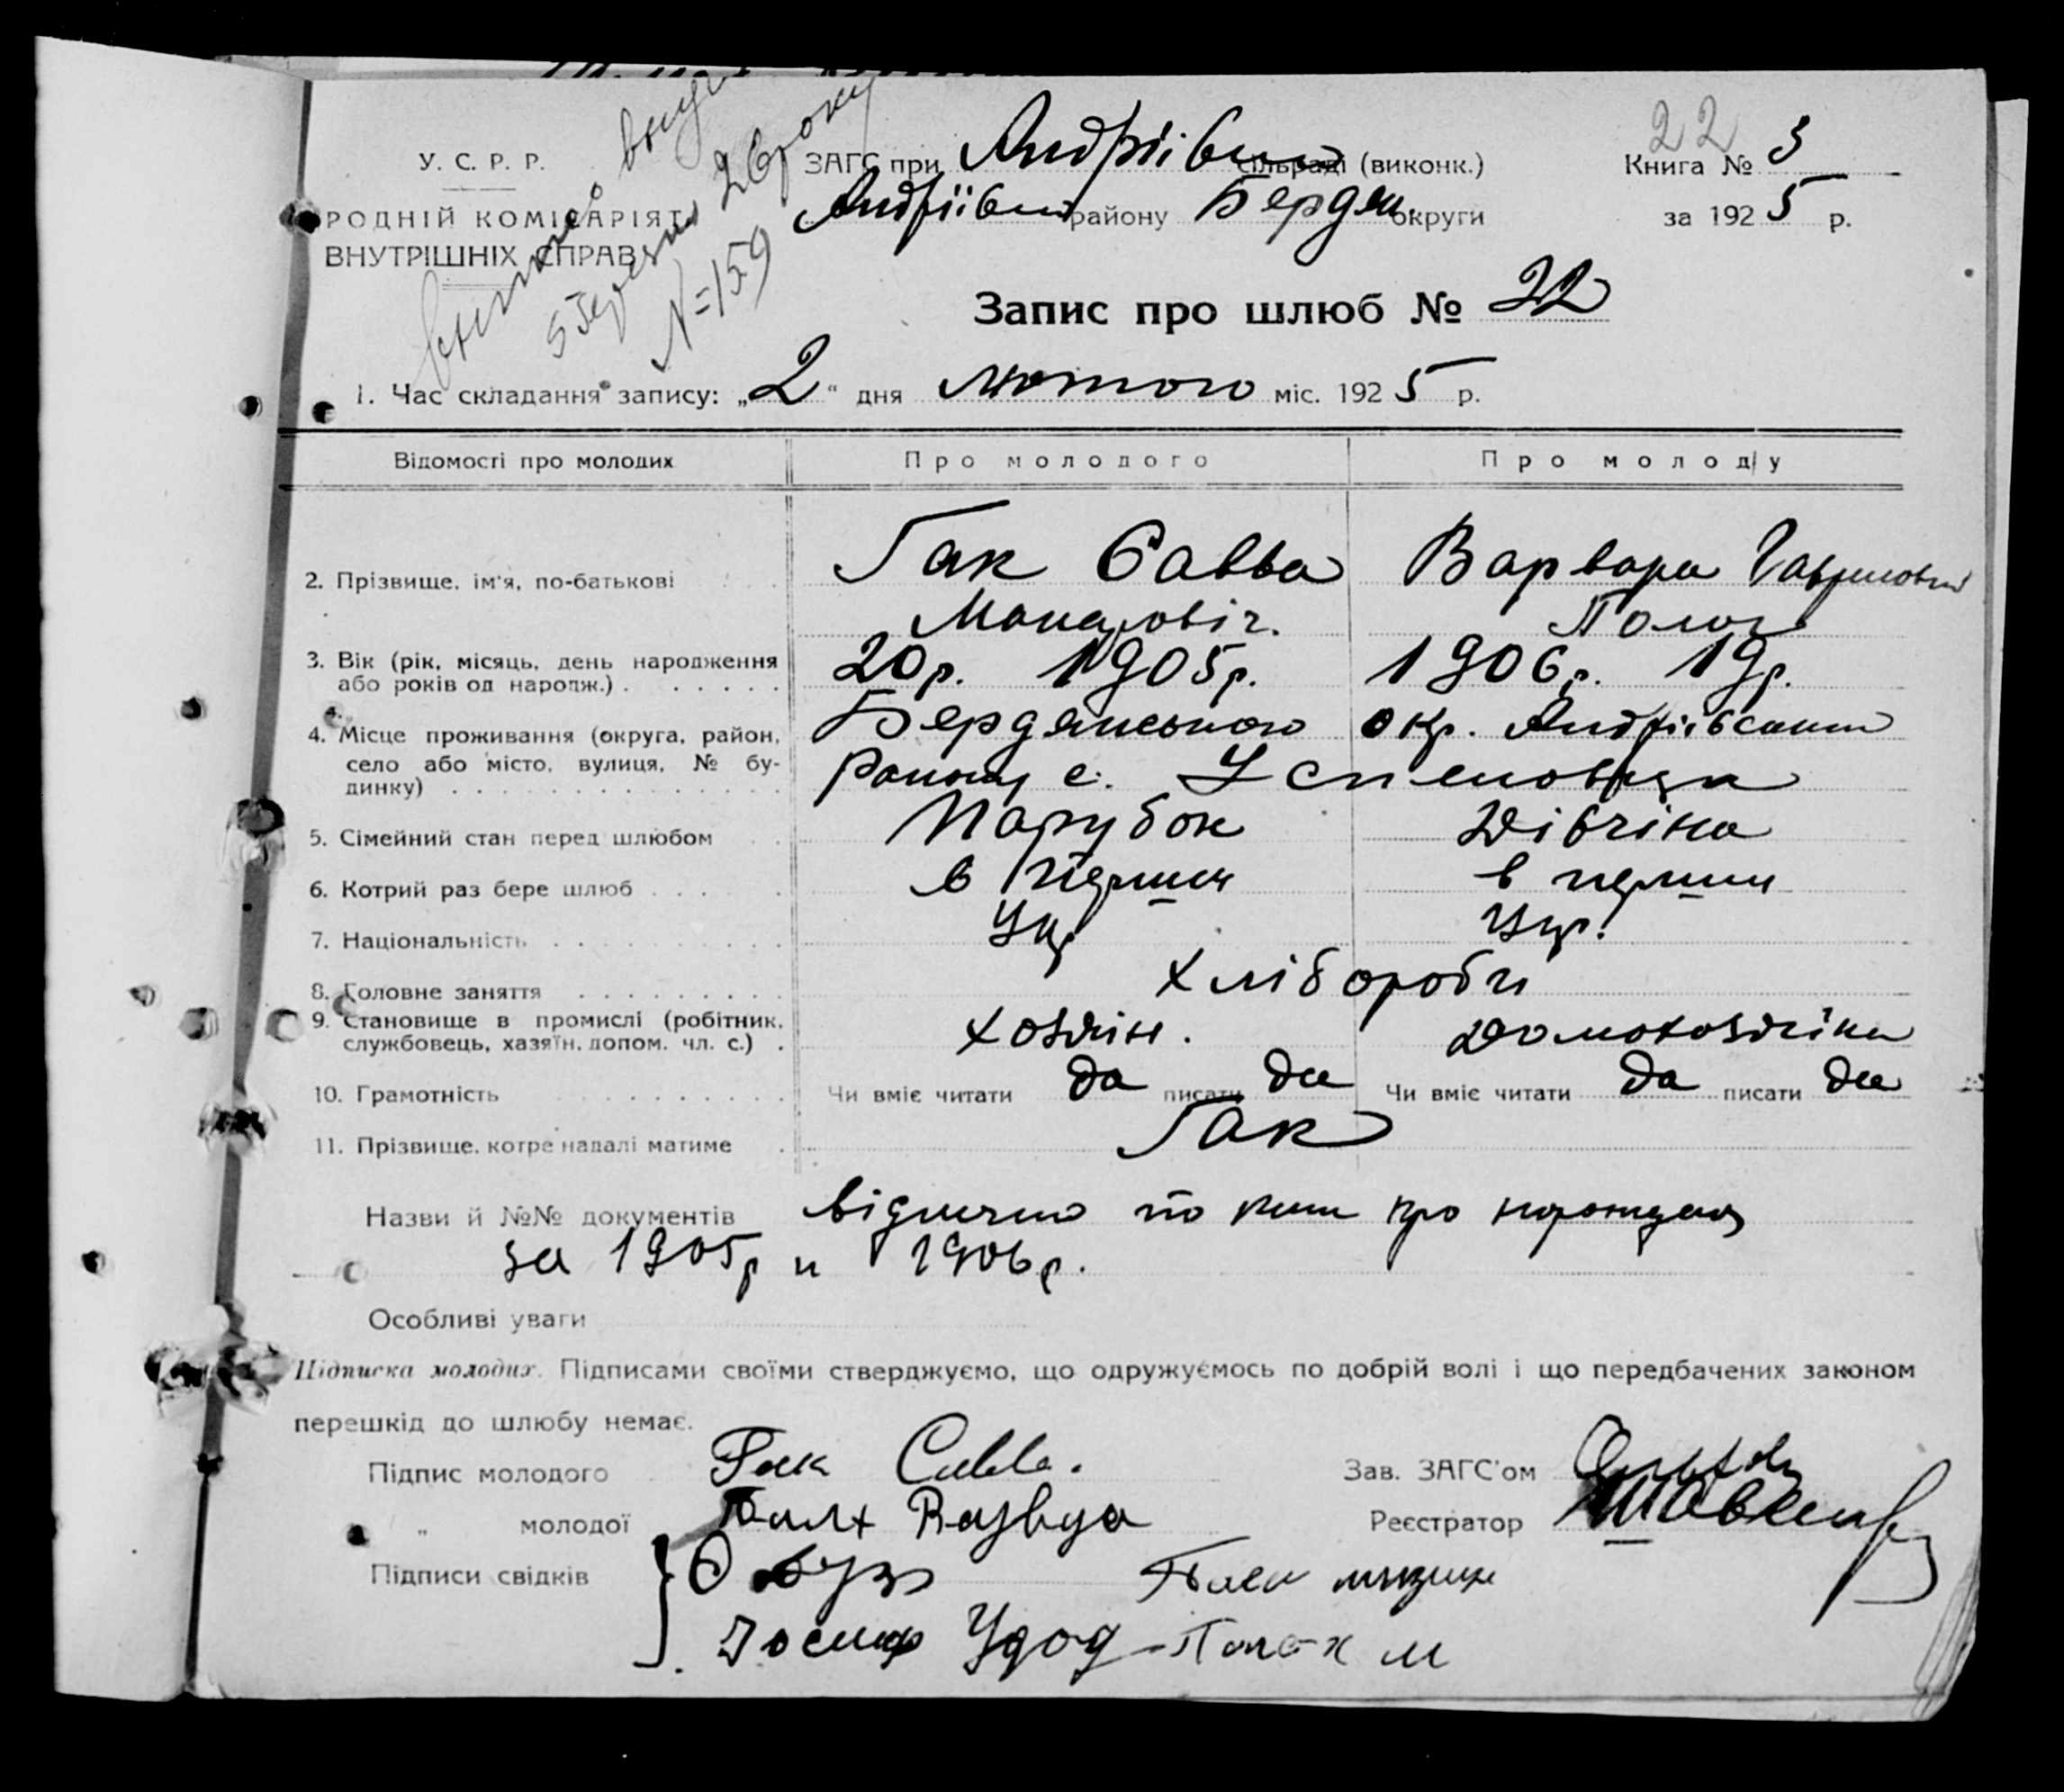 22
У. С. Р. Р.
ЗАГС при Андріївськ сільраді (виконк.)
Книга № 3
РОДНІЙ КОМІСАРІЯТ
Андріївськ району Бердян. округи
за 1925 р.
ВНУТРІШНІХ СПРАВ
26 року
№ 159
Запис про шлюб № 22
1. Час складання запису: „2“ дня лютого міс. 1925 р.
Відомості про молодих
Про молодого
Про молоду
2. Прізвище, ім'я, по-батькові
Гак Савва
Варвара Гавриловна
Макаровіч.
3. Вік (рік, місяць, день народження
або років од народж.)
20р. 1905р.
1906р. 19р.
4. Місце проживання (округа, район,
село або місто, вулиця, № бу-
динку)
Бердянського окр. Андріївського
Району с.
5. Сімейний стан перед шлюбом
Парубок
Дівчіна
6. Котрий раз бере шлюб
в перший
в перший
7. Національність
Укр
Укр.
8. Головне заняття
Хлібороби
9. Становище в промислі (робітник,
службовець, хазяїн, допом. чл. с.)
хозяін.
Домохозяіка
10. Грамотність
Чи вміє читати да писати да
Чи вміє читати да писати да
11. Прізвище, котре надалі матиме
Гак
Назви й №№ документів
по книги про народження
за 1905р и 1906р.
Особливі уваги
Підписка молодих. Підписами своїми стверджуємо, що одружуємось по добрій волі і що передбачених законом
перешкід до шлюбу немає.
Підпис молодого Гак Савва.
Зав. ЗАГС'ом
„ молодої
Реєстратор
Підписи свідків
Іосиф Удод